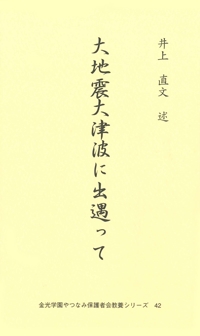 井上 直文 述
大地震大津波に出遇って
金光学園やつなみ保護者会教養シリーズ 42